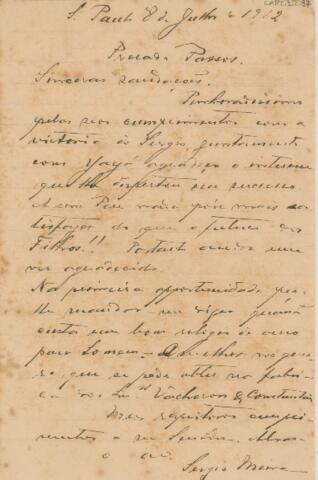 S. Paulo 8 de Julho de 1912
Prezado Passos.
Sinceras saudações.
Penhoradissimo
pelos seus cumprimentos com a
victoria do Sergio, juntamente
com Yayá agradeço o interesse
que lhe despertou seu successo
A um Pae nada póde mais sa-
tisfazer do que o futuro dos
Filhos!! Portanto ainda uma
vez agradecido
Na primeira opportunidade peço
lhe mandar-me dizer quanto
custa um bom relogio de ouro
para homem — O melhor no gene-
ro, que se póde obter na fabri-
ca dos Snrs. Vacheron & Constantin
Meus respeitosos cumpri-
mentos a sua Senhora. Abra-
ço ao
Sergio Meira